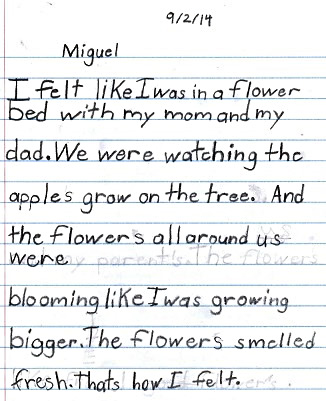 9/2/14
Miguel
I felt like I was in a flower
bed with my mom and my
dad. We were watching the
apples grow on the tree. And
the flowers all around us
were
my parents. The flowers
blooming like I was growing
bigger. The flowers smelled
fresh. Thats how I felt.